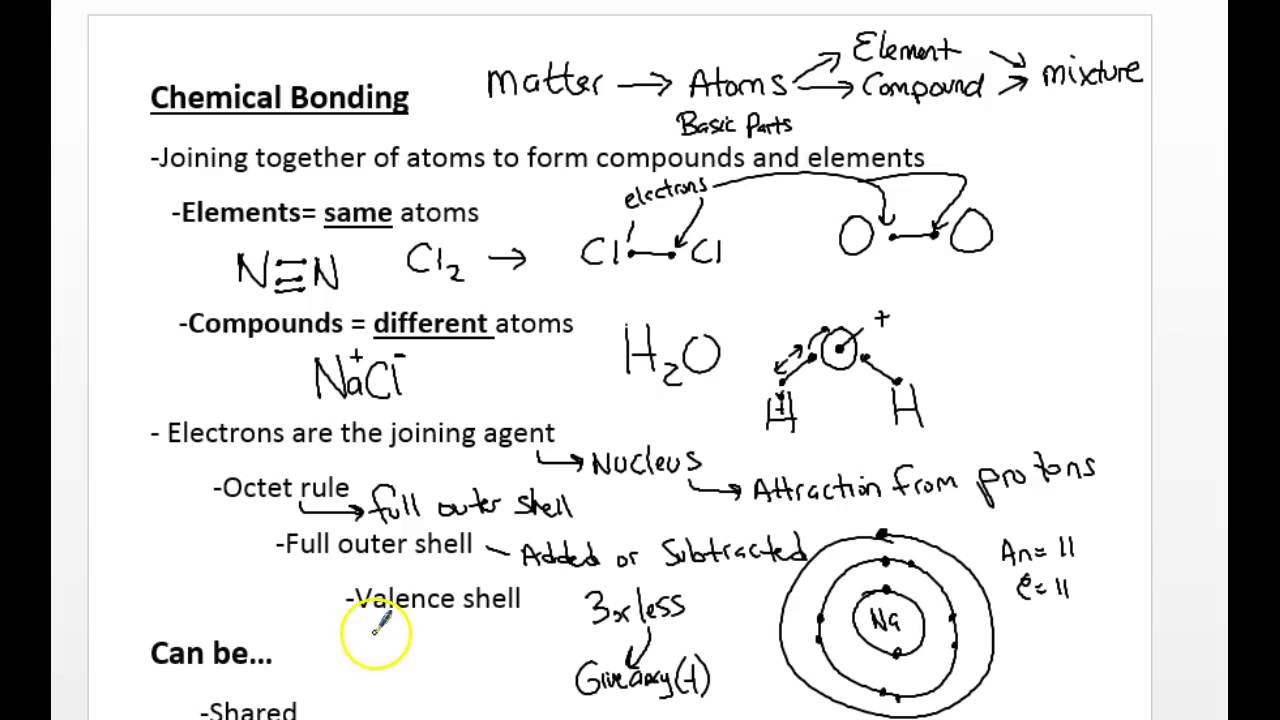 Matter → Atoms → Element → mixture
Compound
Chemical Bonding
Basic Parts
-Joining together of atoms to form compounds and elements
electrons
-Elements= same atoms
N≡N Cl₂ → Cl—Cl O—O
-Compounds = different atoms
H₂O +
Na⁺Cl⁻
H H
- Electrons are the joining agent
Nucleus
Attraction from protons
-Octet rule
full outer shell
-Full outer shell – Added or Subtracted
An= 11
e⁻= 11
-Valence shell
3x less
Na
Can be...
Give away (+)
-Shared